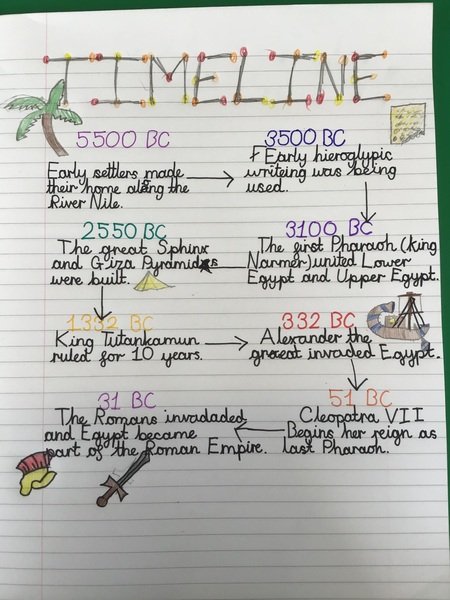 TIMELINE
5500 BC
Early settlers made
their home along the
River Nile.
3500 BC
Early hieroglypic
writeing was being
used.
3100 BC
The first Pharaoh (King
Narmer) united Lower
Egypt and Upper Egypt.
2550 BC
The great Sphinx
and Giza Pyramids
were built.
1332 BC
King Tutankamun
ruled for 10 years.
332 BC
Alexander the
great invaded Egypt.
51 BC
Cleopatra VII
Begins her reign as
last Pharaoh.
31 BC
The Romans invadaded
and Egypt became
part of the Roman Empire.